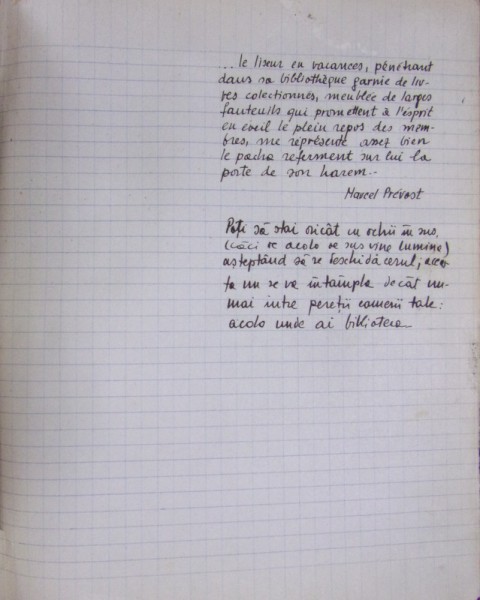 ...le liseur en vacances, pénétrant
dans sa bibliothèque garnie de liv-
res colectionnés, meublée de larges
fauteuils qui promettent à l'esprit
en éveil le plein repos des mem-
bres, me représente assez bien
le pacha refermant sur lui la
porte de son harem...
Marcel Prévost
Poți să stai oricât cu ochii în sus,
(căci de acolo de sus vine lumina)
așteptând să se deschidă cerul; aceas-
ta nu se va întâmpla decât nu-
mai între pereții camerii tale:
acolo unde ai biblioteca